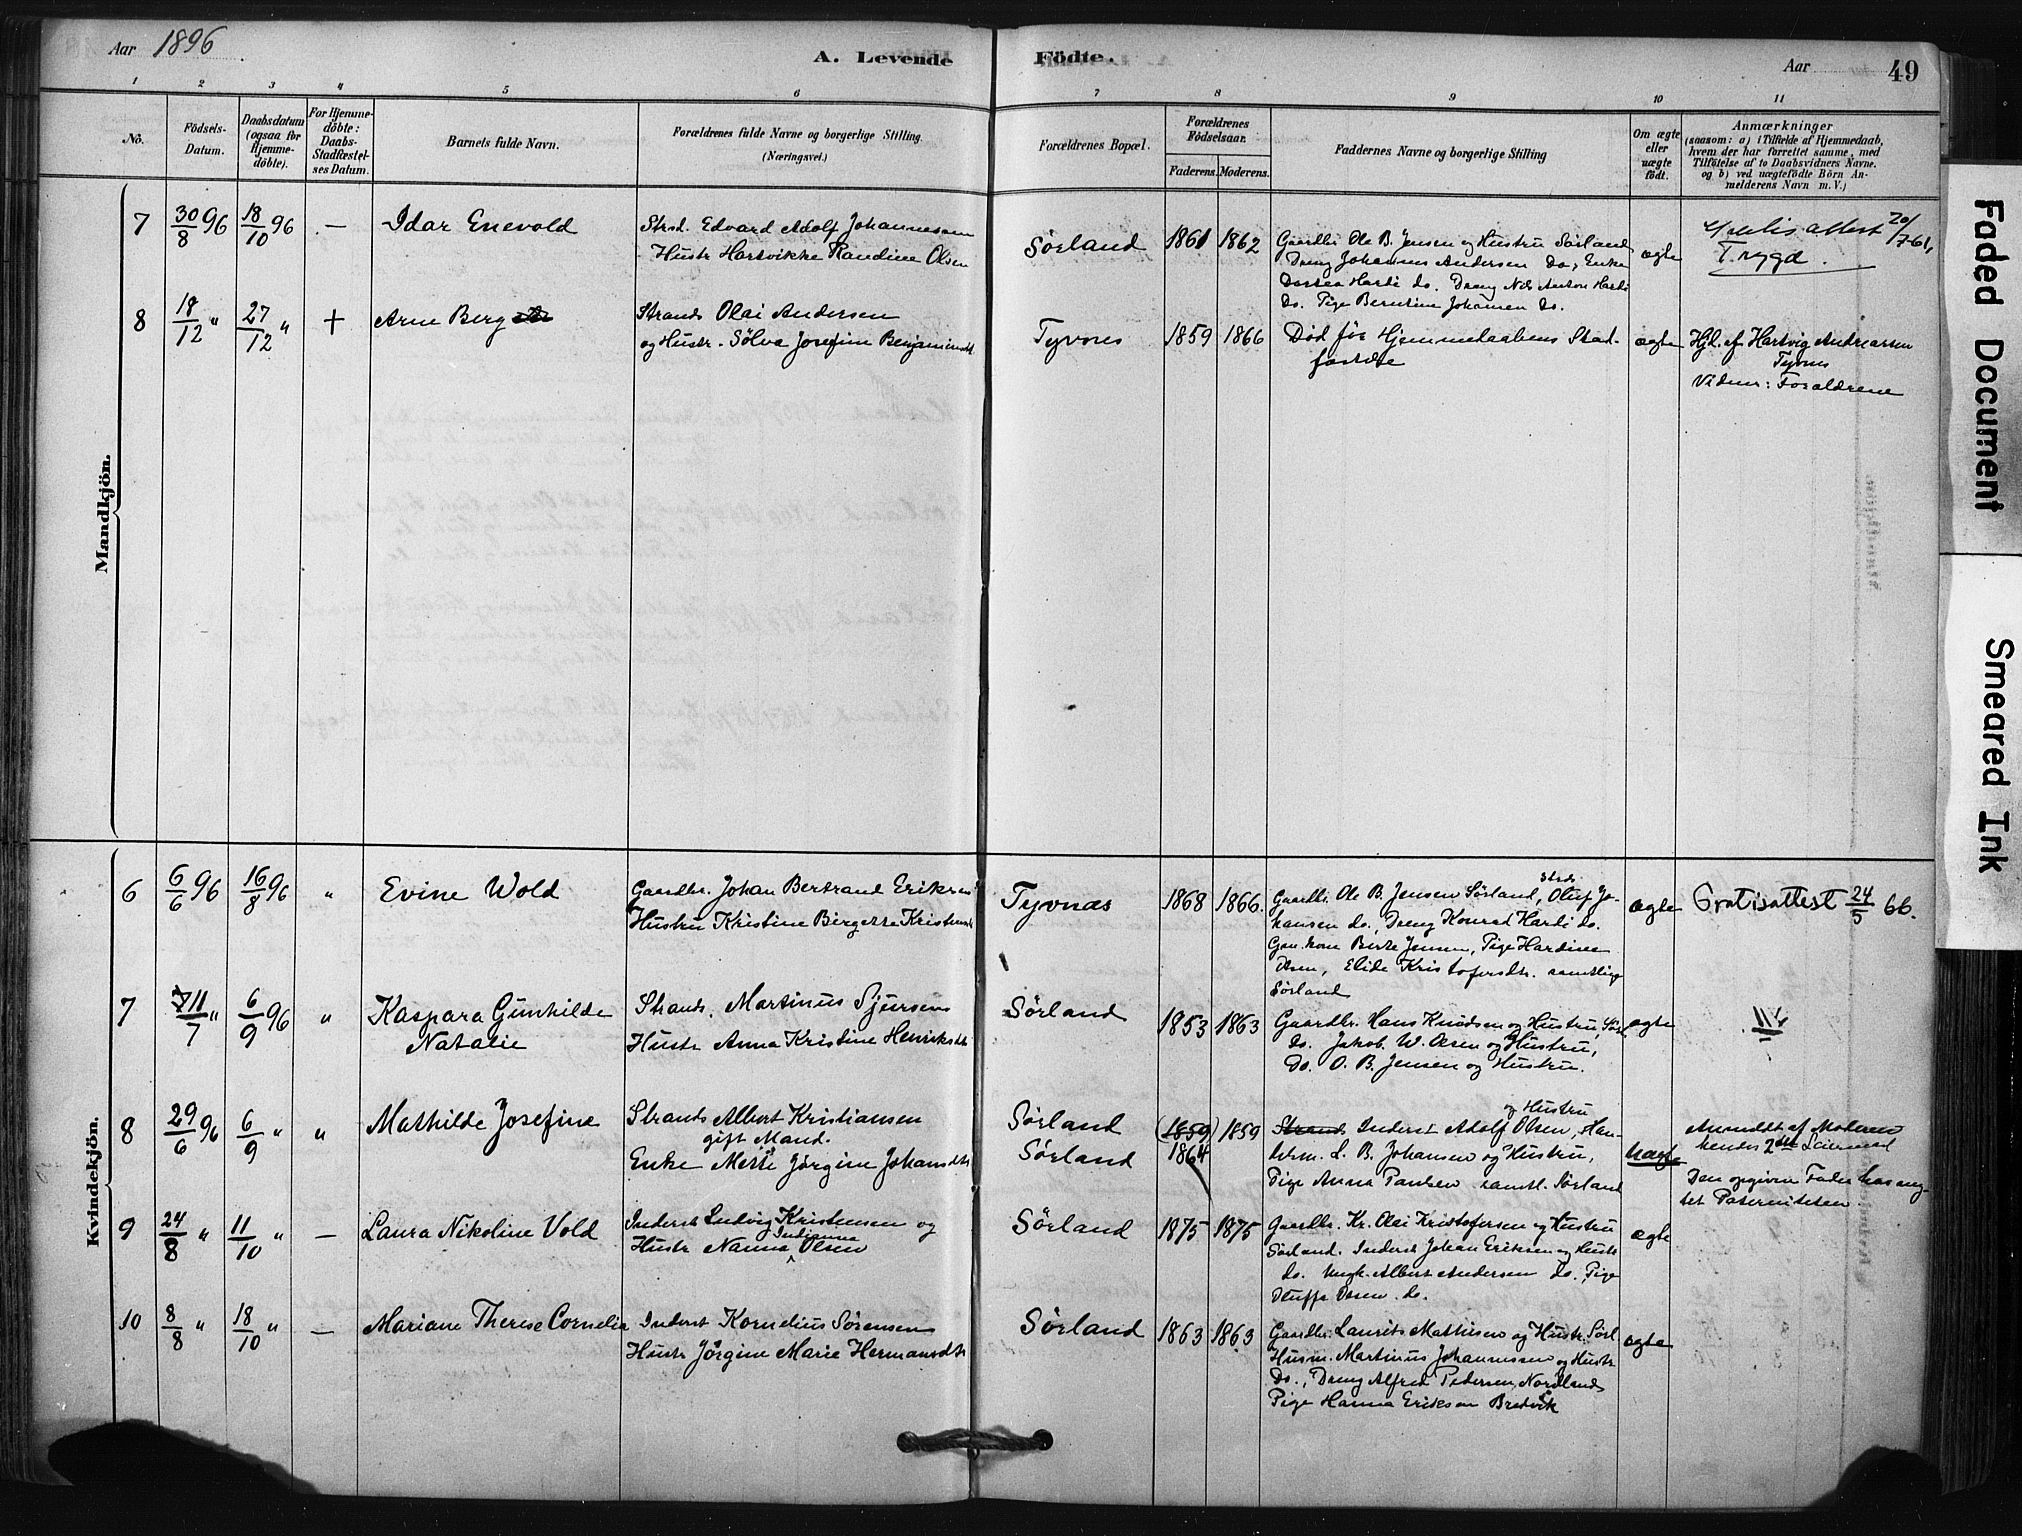 Aar 1896
A. Levende Födte.
Aar
49
1 2 3 4 5 6 7 8 9 10 11
No.
Födsels-
Datum.
Daabsdatum
(ogsaa for
Hjemme-
döbte).
For Hjemme-
döbte:
Daabs-
Stadfæstel-
ses Datum.
Barnets fulde Navn.
Forældrenes fulde Navne og borgerlige Stilling.
(Næringsvei.)
Forældrenes Bopæl.
Forældrenes
Födselsaar.
Faderens. Moderens.
Faddernes Navne og borgerlige Stilling
Om ægte
eller
uægte
födt.
Anmærkninger
(saasom: a) i Tilfælde af Hjemmedaab,
hvem der har forrettet samme, med
Tilföielse af to Daabsvidners Navne,
og b) ved uægtefödte Börn An-
melderens Navn m. V.)
Mandkjön.
7 30/8 96 18/10 96 — Idar Enevold
Strd. Edvard Adolf Johannesen
Hustr Hartvikke Randine Olsen
Sørland 1861 1862
Gaardbr Ole B. Jensen og Hustru Sørland
Dreng Johannes Andersen Do, Enke
Dortea Hardi do. Dreng Nils Anton Hardi
Do. Pige Berntine Johansen Do.
ægte
attest 20/7-61,
Trygd.
8 18/12 " 27/12 " + Arne Berg
Strands Olai Andersen
og Hustr. Sølva Josefine Benjaminsdt
Tyvnes 1859 1866
Død før Hjemmedaabens Stad-
fæstelse
ægte
Hjd. af Hartvig Andreassen
Tyvnes
Vidner: Forældrene
Kvindekjön.
6 6/6 96 16/8 96 " Evine Wold
Gaardbr. Johan Bertrand Eriksen
Hustru Kristine Birgette Kristensd
Tyvnæs 1868 1866.
Gaardbr. Ole B. Jensen Sørland, Strds Oluf Jo-
hansen do., Dreng Konrad Hardi do.
Gm. kone Berte Jensen, Pige Hardine
Olsen, Elide Kristofersdtr. samtlige
Sørland
ægte
Gratisattest 24/5 66.
7 11/7 " 6/9 96 " Kaspara Gunhilde
Natalie
Strands. Martinus Sjursen
Hustr Anna Kristine Henriksdtr
Sørland 1853 1863
Gaardbr. Hans Knudsen og Hustru, Sørl
Do. Jakob W. Olsen og Hustru,
Do. O. B. Jensen og Hustru.
ægte
8 29/6 96 6/9 " " Mathilde Josefine
Strands Albert Kristiansen
gift Mand.
Enke Mette Jørgine Johansdtr
Sørland (1859) 1859
Sørland 1864
og Hustru
Strands Inderst Adolf Olsen, Han-
delsm. L. B. Johansen og Hustru,
Pige Anna Paulsen samtl. Sørland
uægte
Anmeldt af Moderen
hendes 2det Leiermaal
Den opgivne Fader has ang-
tet Paterniteten.
9 24/8 " 11/10 " — Laura Nikoline Vold
Inderst Ludvig Kristensen og
Hustr Nanna Indianna Olsen
Sørland 1875 1875
Gaardbr. Kr. Olai Kristofersen og Hustru
Sørland. Inderst Johan Eriksen og Hustr
do. Ungk. Albert Andersen do., Pige
Oluffa Olsen do.
ægte
10 8/8 " 18/10 " — Mariane Therese Cornelia
Inderst Kornelius Sørensen
Hustr Jørgine Marie Hermansdtr
Sørland 1863 1863
Gaardbr. Laurits Mathisen og Hustr Sørl
Husm. Martinus Johannessen og Hustr
Do., Dreng Alfred Pedersen, Nordland
Pige Hanna Eriksen Bredvik
ægte
Faded Document
Smeared Ink